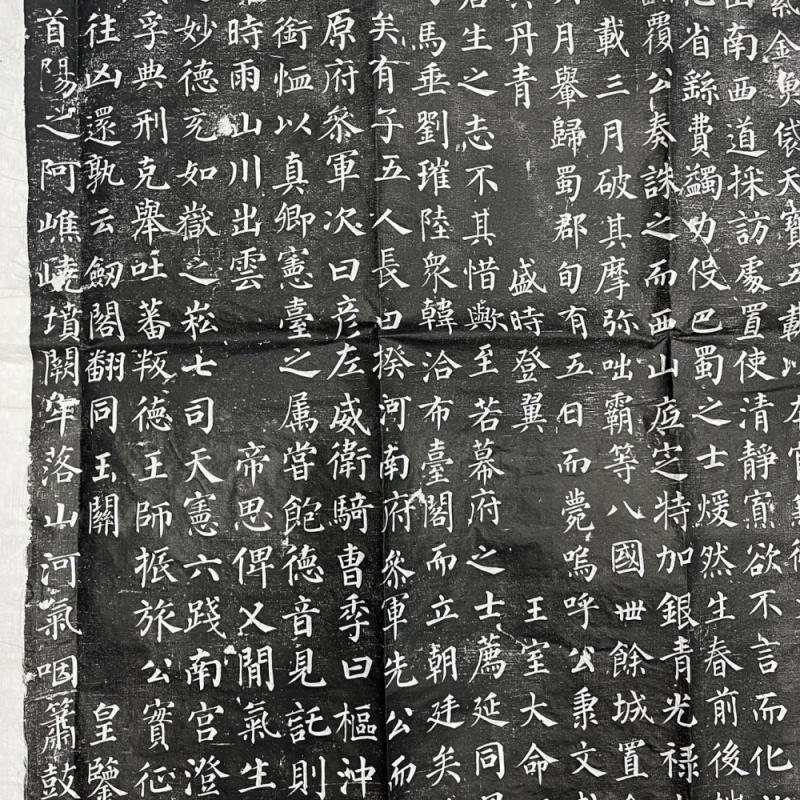 紫金魚袋天寶五載以本官兼御
山南西道採訪處置使清靜寡欲不言而化
省繇費蠲力役巴蜀之士煖然生春前後
覆公奏誅之而西山底定特加銀青光禄大
載三月破其摩弥咄霸等八國卌餘城置金
月轝歸蜀郡旬有五日而薨嗚呼公秉文
丹青 盛時登翼 王室大命
君生之志不其惜歟至若幕府之士薦延同
馬垂劉璀陸衆韓洽布臺閣而立朝廷矣
矣有子五人長曰揆河南府叅軍先公而
原府叅軍次曰彦左威衛騎曹季曰樞沖
銜恤以真卿憲臺之属嘗飽德音見託則
時雨山川出雲 帝思俾乂閒氣生
妙德充如嶽之崧七司天憲六踐南宮澄
孚典刑克舉吐蕃叛德王師振旅公實征
往凶還孰云劒閣翻同玉關 皇鑒
首陽之阿嶕嶢墳闕牢落山河氣咽簫鼓